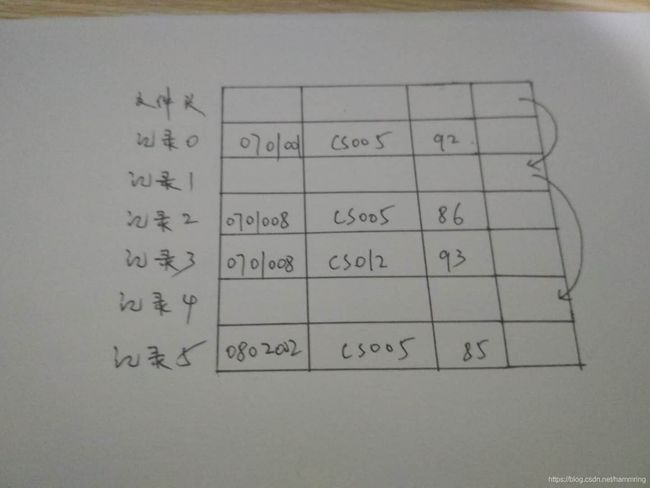 文件头
记录0 070100 CS005 92
记录1
记录2 0701008 CS005 86
记录3 0701008 CS012 93
记录4
记录5 0802002 CS005 85
https://blog.csdn.net/hammring